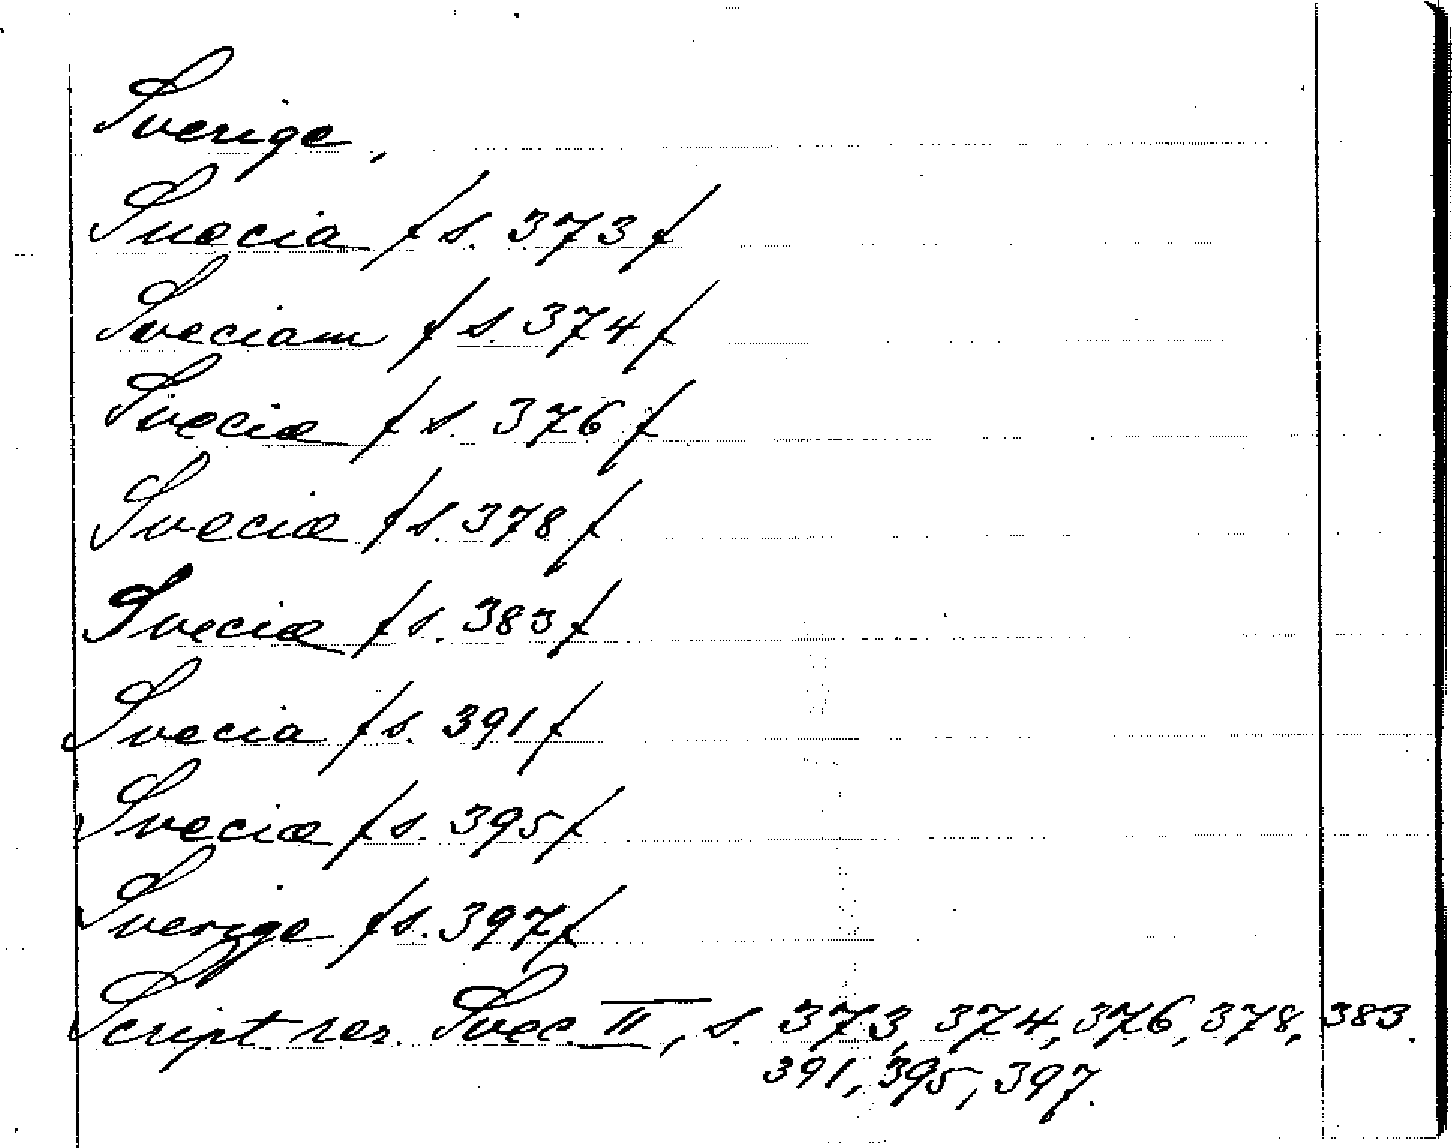 Sverige,
Suecia /s. 373/
Sveciam /s. 374/
Sveciæ /s. 376/
Sveciæ /s. 378/
Sveciæ /s. 383/
Svecia /s. 391/
Sveciæ /s. 395/
Sverige /s. 397/
Script rer. Svec. II, s. 373, 374, 376, 378, 383.
391, 395, 397.